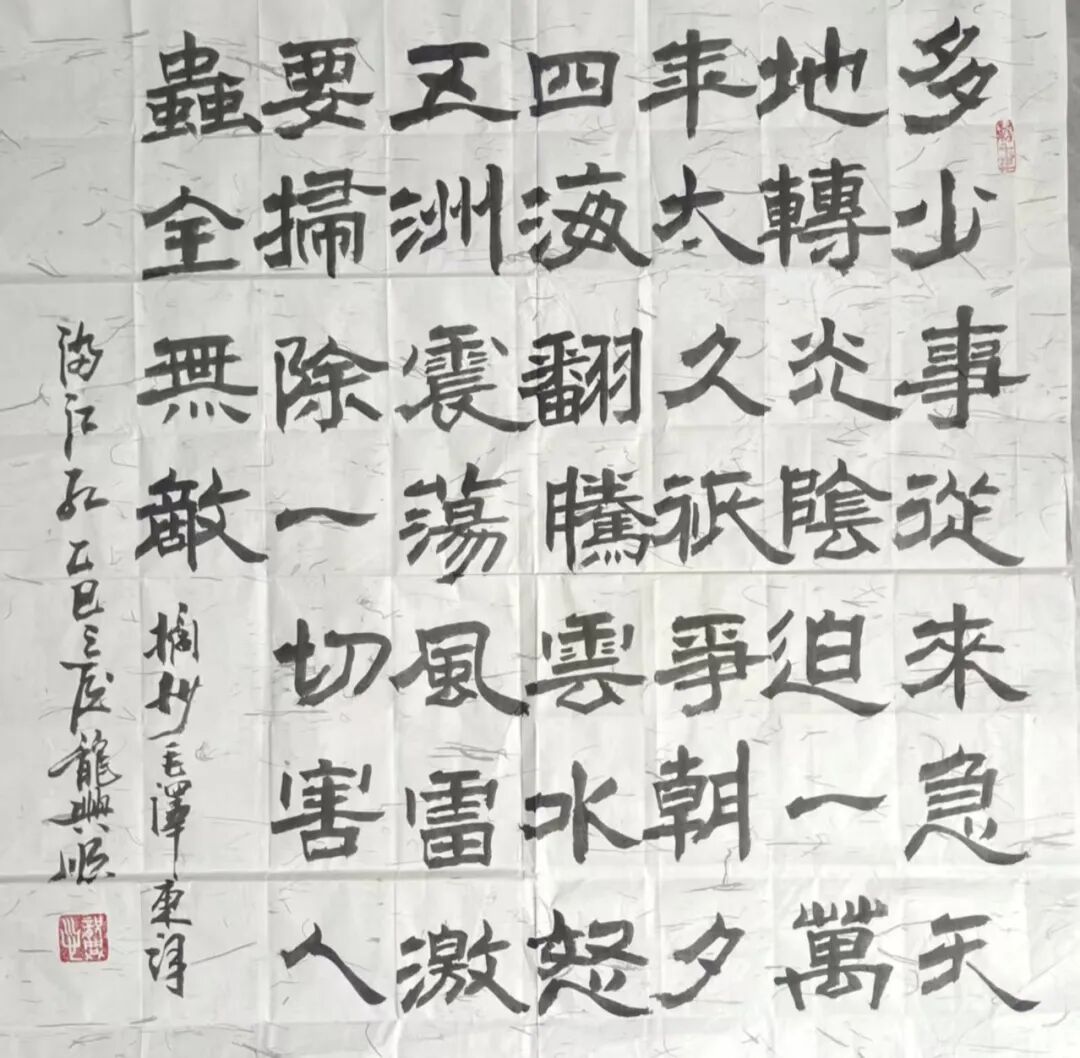 多少事從來急天
地轉光陰迫一萬
年太久祇爭朝夕
四海翻騰雲水怒
五洲震蕩風雷激
要掃除一切害人
蟲全無敵 摘抄毛澤東詞
滿江紅 乙巳 龍興順